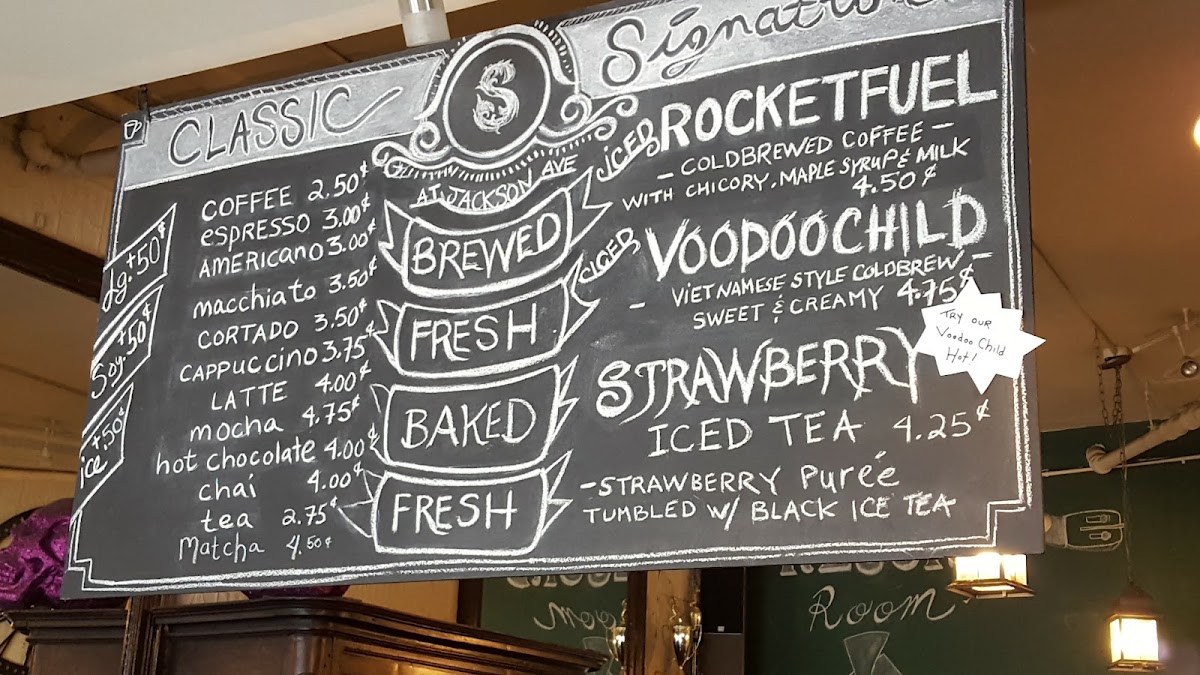 CLASSIC
COFFEE 2.50¢
espresso 3.00¢
AMERICANO 3.00¢
macchiato 3.50¢
CORTADO 3.50¢
CAPPUCCINO 3.75¢
LATTE 4.00¢
mocha 4.75¢
hot chocolate 4.00¢
chai 4.00¢
tea 2.75¢
Matcha 4.50¢
lg. +.50¢
Soy +.50¢
ice +.50¢
S
AT JACKSON AVE
BREWED
FRESH
BAKED
FRESH
Signature
iCED ROCKETFUEL
- COLDBREWED COFFEE -
WITH CHICORY, MAPLE SYRUP & MILK
4.50¢
ICED VOODOOCHILD
- VIETNAMESE STYLE COLDBREW -
SWEET & CREAMY 4.75¢
TRY OUR
Voodoo Child
Hot!
STRAWBERRY
ICED TEA 4.25¢
- STRAWBERRY Pureé
TUMBLED W/ BLACK ICE TEA
Room